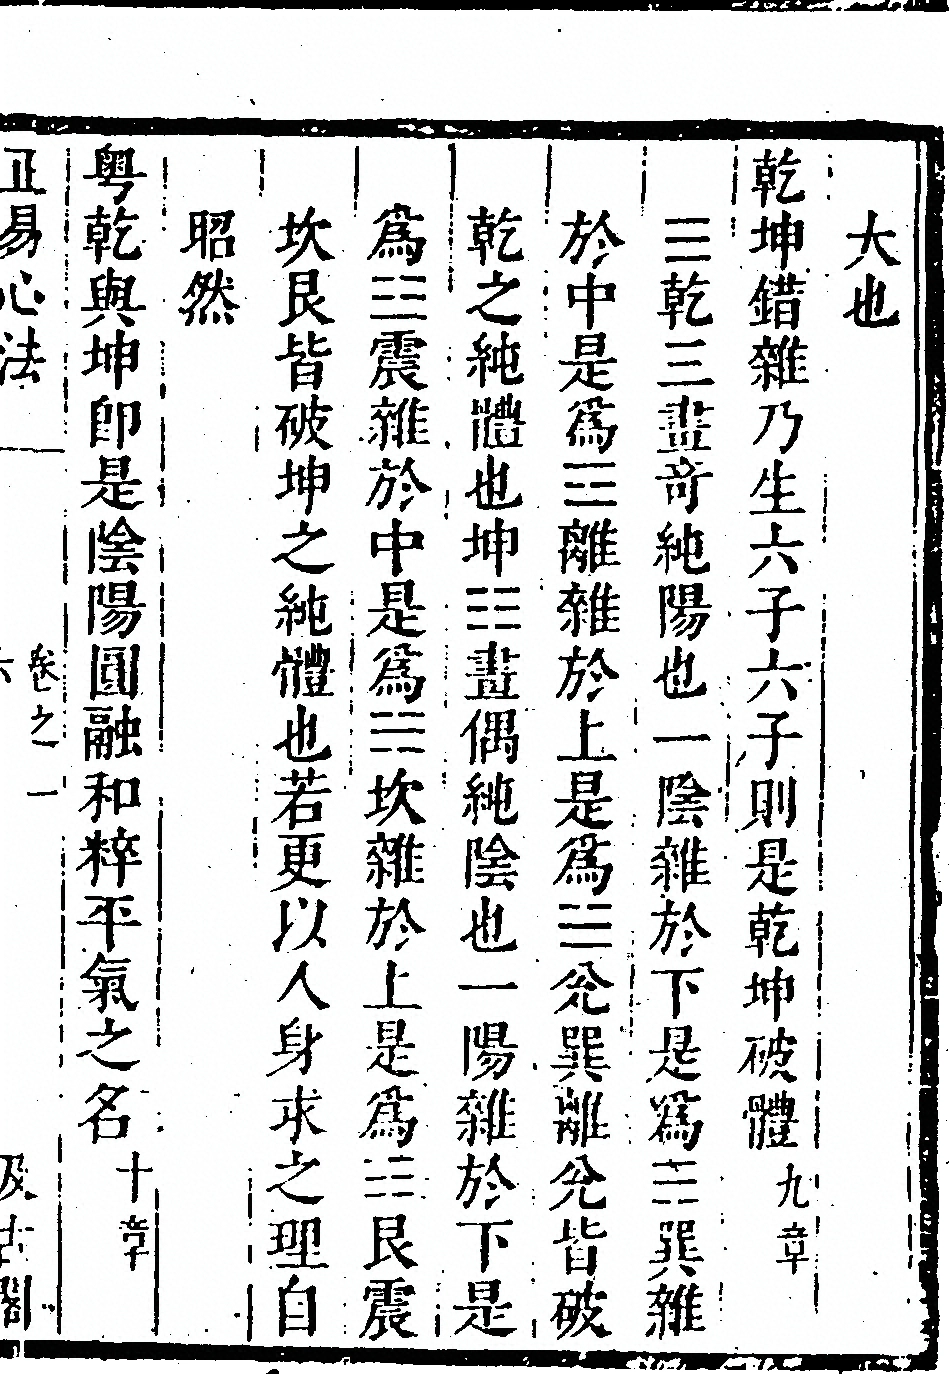 大也
乾坤錯雜乃生六子六子則是乾坤破體九章
☰乾三畫奇純陽也一陰雜於下是爲☴巽雜
於中是爲☲離雜於上是爲☱兊巽離兊皆破
乾之純體也坤☷畫偶純陰也一陽雜於下是
爲☳震雜於中是爲☵坎雜於上是爲☶艮震
坎艮皆破坤之純體也若更以人身求之理自
昭然
粤乾與坤卽是陰陽圓融和粹平氣之名十章
正易心法 卷之一 汲古閣